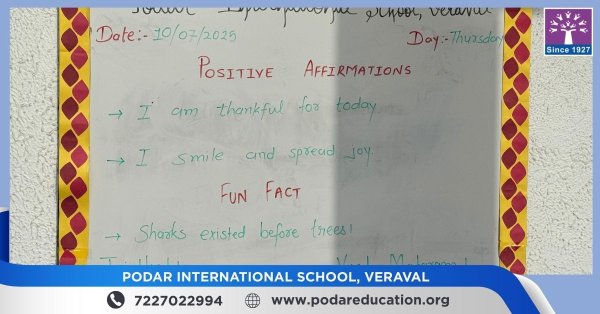 International School, Veraval
Date:- 10/07/2025
Day:- Thursday
POSITIVE AFFIRMATIONS
→ I am thankful for today
→ I smile and spread joy.
FUN FACT
→ Sharks existed before trees!
Since 1927
PODAR INTERNATIONAL SCHOOL, VERAVAL
7227022994
www.podareducation.org